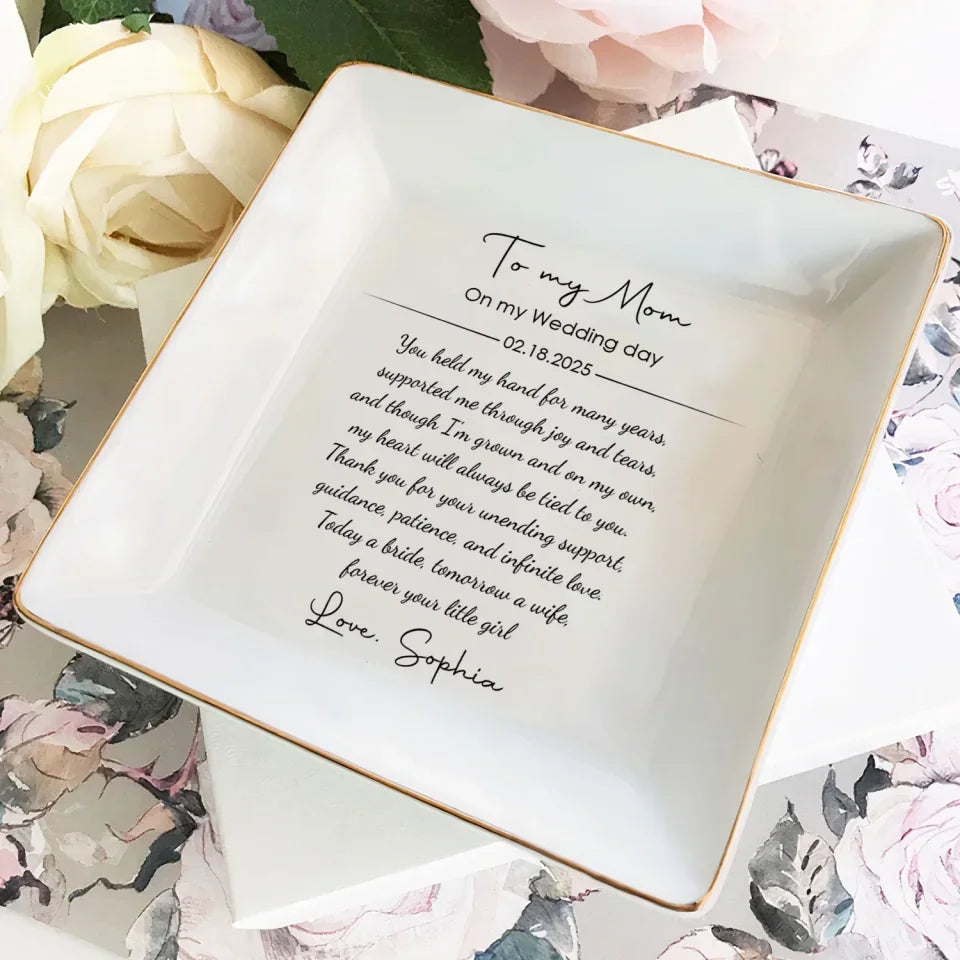 To my Mom
On my Wedding day
02.18.2025
You held my hand for many years,
supported me through joy and tears,
and though I'm grown and on my own,
my heart will always be tied to you.
Thank you for your unending support,
guidance, patience, and infinite love.
Today a bride, tomorrow a wife,
forever your little girl
Love, Sophia